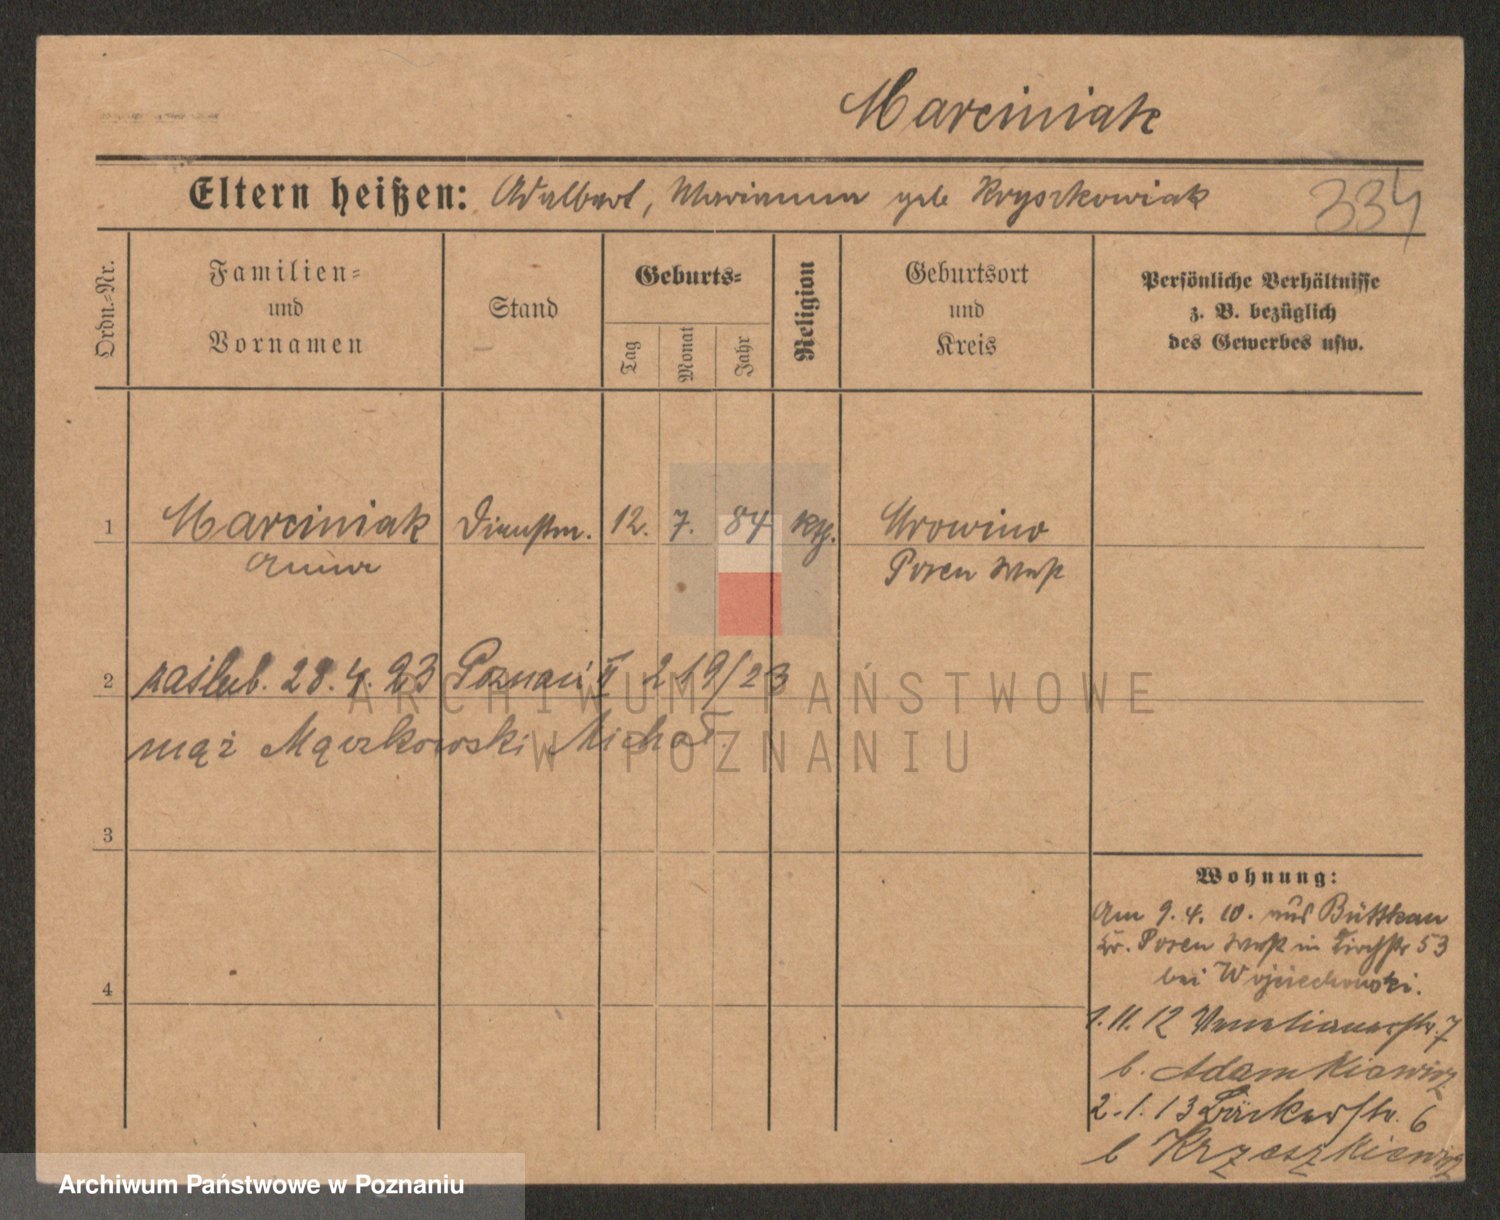 Marciniak
Eltern heißen: Adalbert, Marianna geb Kryszkowiak
334
Ordn.-Nr.
Familien-
und
Vornamen
Stand
Geburts-
Tag
Monat
Jahr
Religion
Geburtsort
und
Kreis
Persönliche Verhältnisse
z. B. bezüglich
des Gewerbes usw.
1
Marciniak Dienstm. 12. 7. 84 kth. Mrowino
Anna Posen West
2
zaślub. 28.4.23 Poznań II 219/23
mąż Mączkowski Michał.
3
4
Wohnung:
Am 9.4.10. aus Büttkau
Kr. Posen West in Kirchstr 53
bei Wojciechowski.
1.11.12 Venetianerstr. 7
b. Adamkiewicz
2.1.13 Bäckerstr. 6
b Krzeszkiewicz
ARCHIWUM PAŃSTWOWE
W POZNANIU
Archiwum Państwowe w Poznaniu